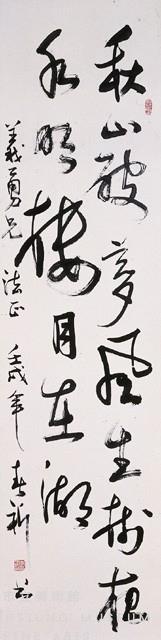 秋山破夢風生樹夜
水明樓月在湖
義勇兄 法正 壬戌年